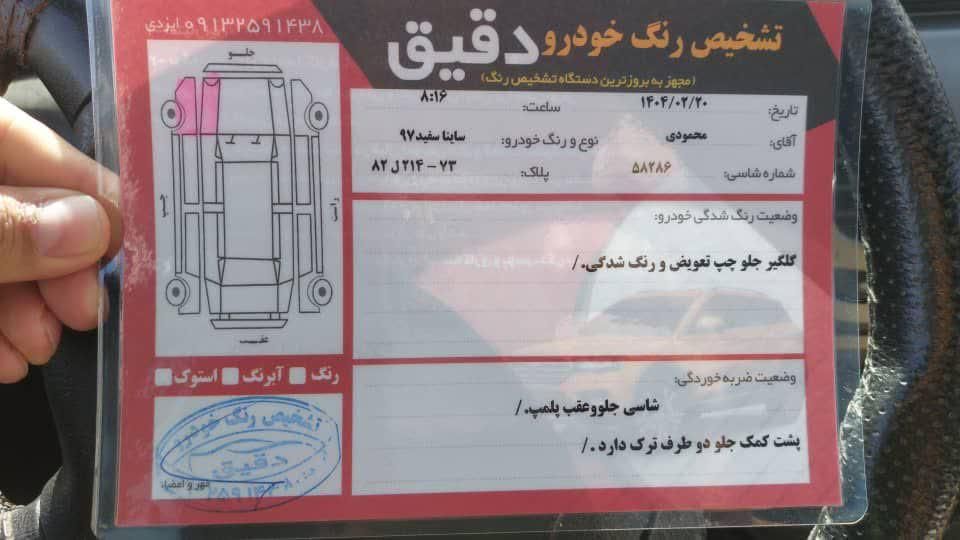 تشخیص رنگ خودرو دقیق
(مجهز به بروزترین دستگاه تشخیص رنگ)
۰۹۱۳۲۵۹۱۴۳۸ ایزدی
تاریخ: ۱۴۰۴/۰۲/۲۰ ساعت: ۸:۱۶
آقای: محمودی نوع و رنگ خودرو: ساینا سفید۹۷
شماره شاسی: ۵۸۲۸۶ پلاک: ۷۳ – ۲۱۴ ل ۸۲
وضعیت رنگ شدگی خودرو:
گلگیر جلو چپ تعویض و رنگ شدگی./
وضعیت ضربه خوردگی:
شاسی جلووعقب پلمپ./
پشت کمک جلو دو طرف ترک دارد ./
جلو
چپ
راست
عقب
رنگ آبرنگ استوک
تشخیص رنگ خودرو
دقیق
مهر و امضا: